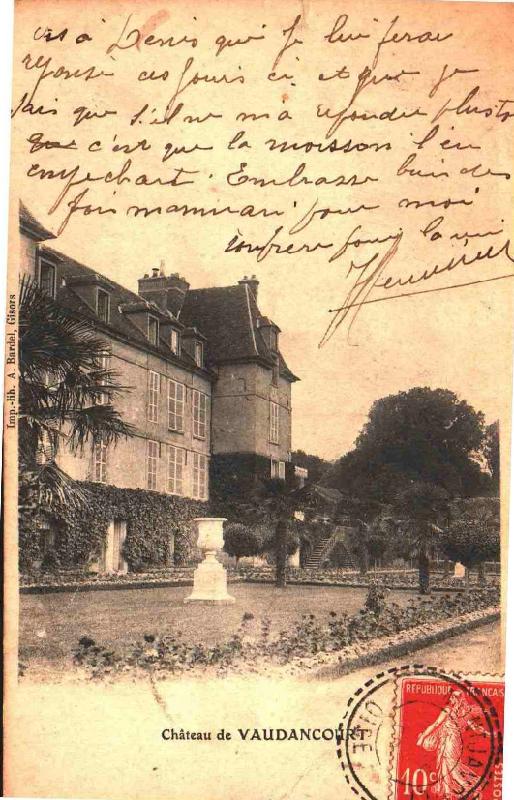 à Denis que je lui ferai
réponse ces jours ci et que je
fais que s'il ne m'a répondu plusto
c'est que la moisson l'en
empechait. Embrasse bien des
fois maman pour moi
ton frère pour la vie
Imp.-lib. A. Bardel, Gisors
Château de VAUDANCOURT
RÉPUBLIQUE FRANÇAISE
10c
POSTES
OISE